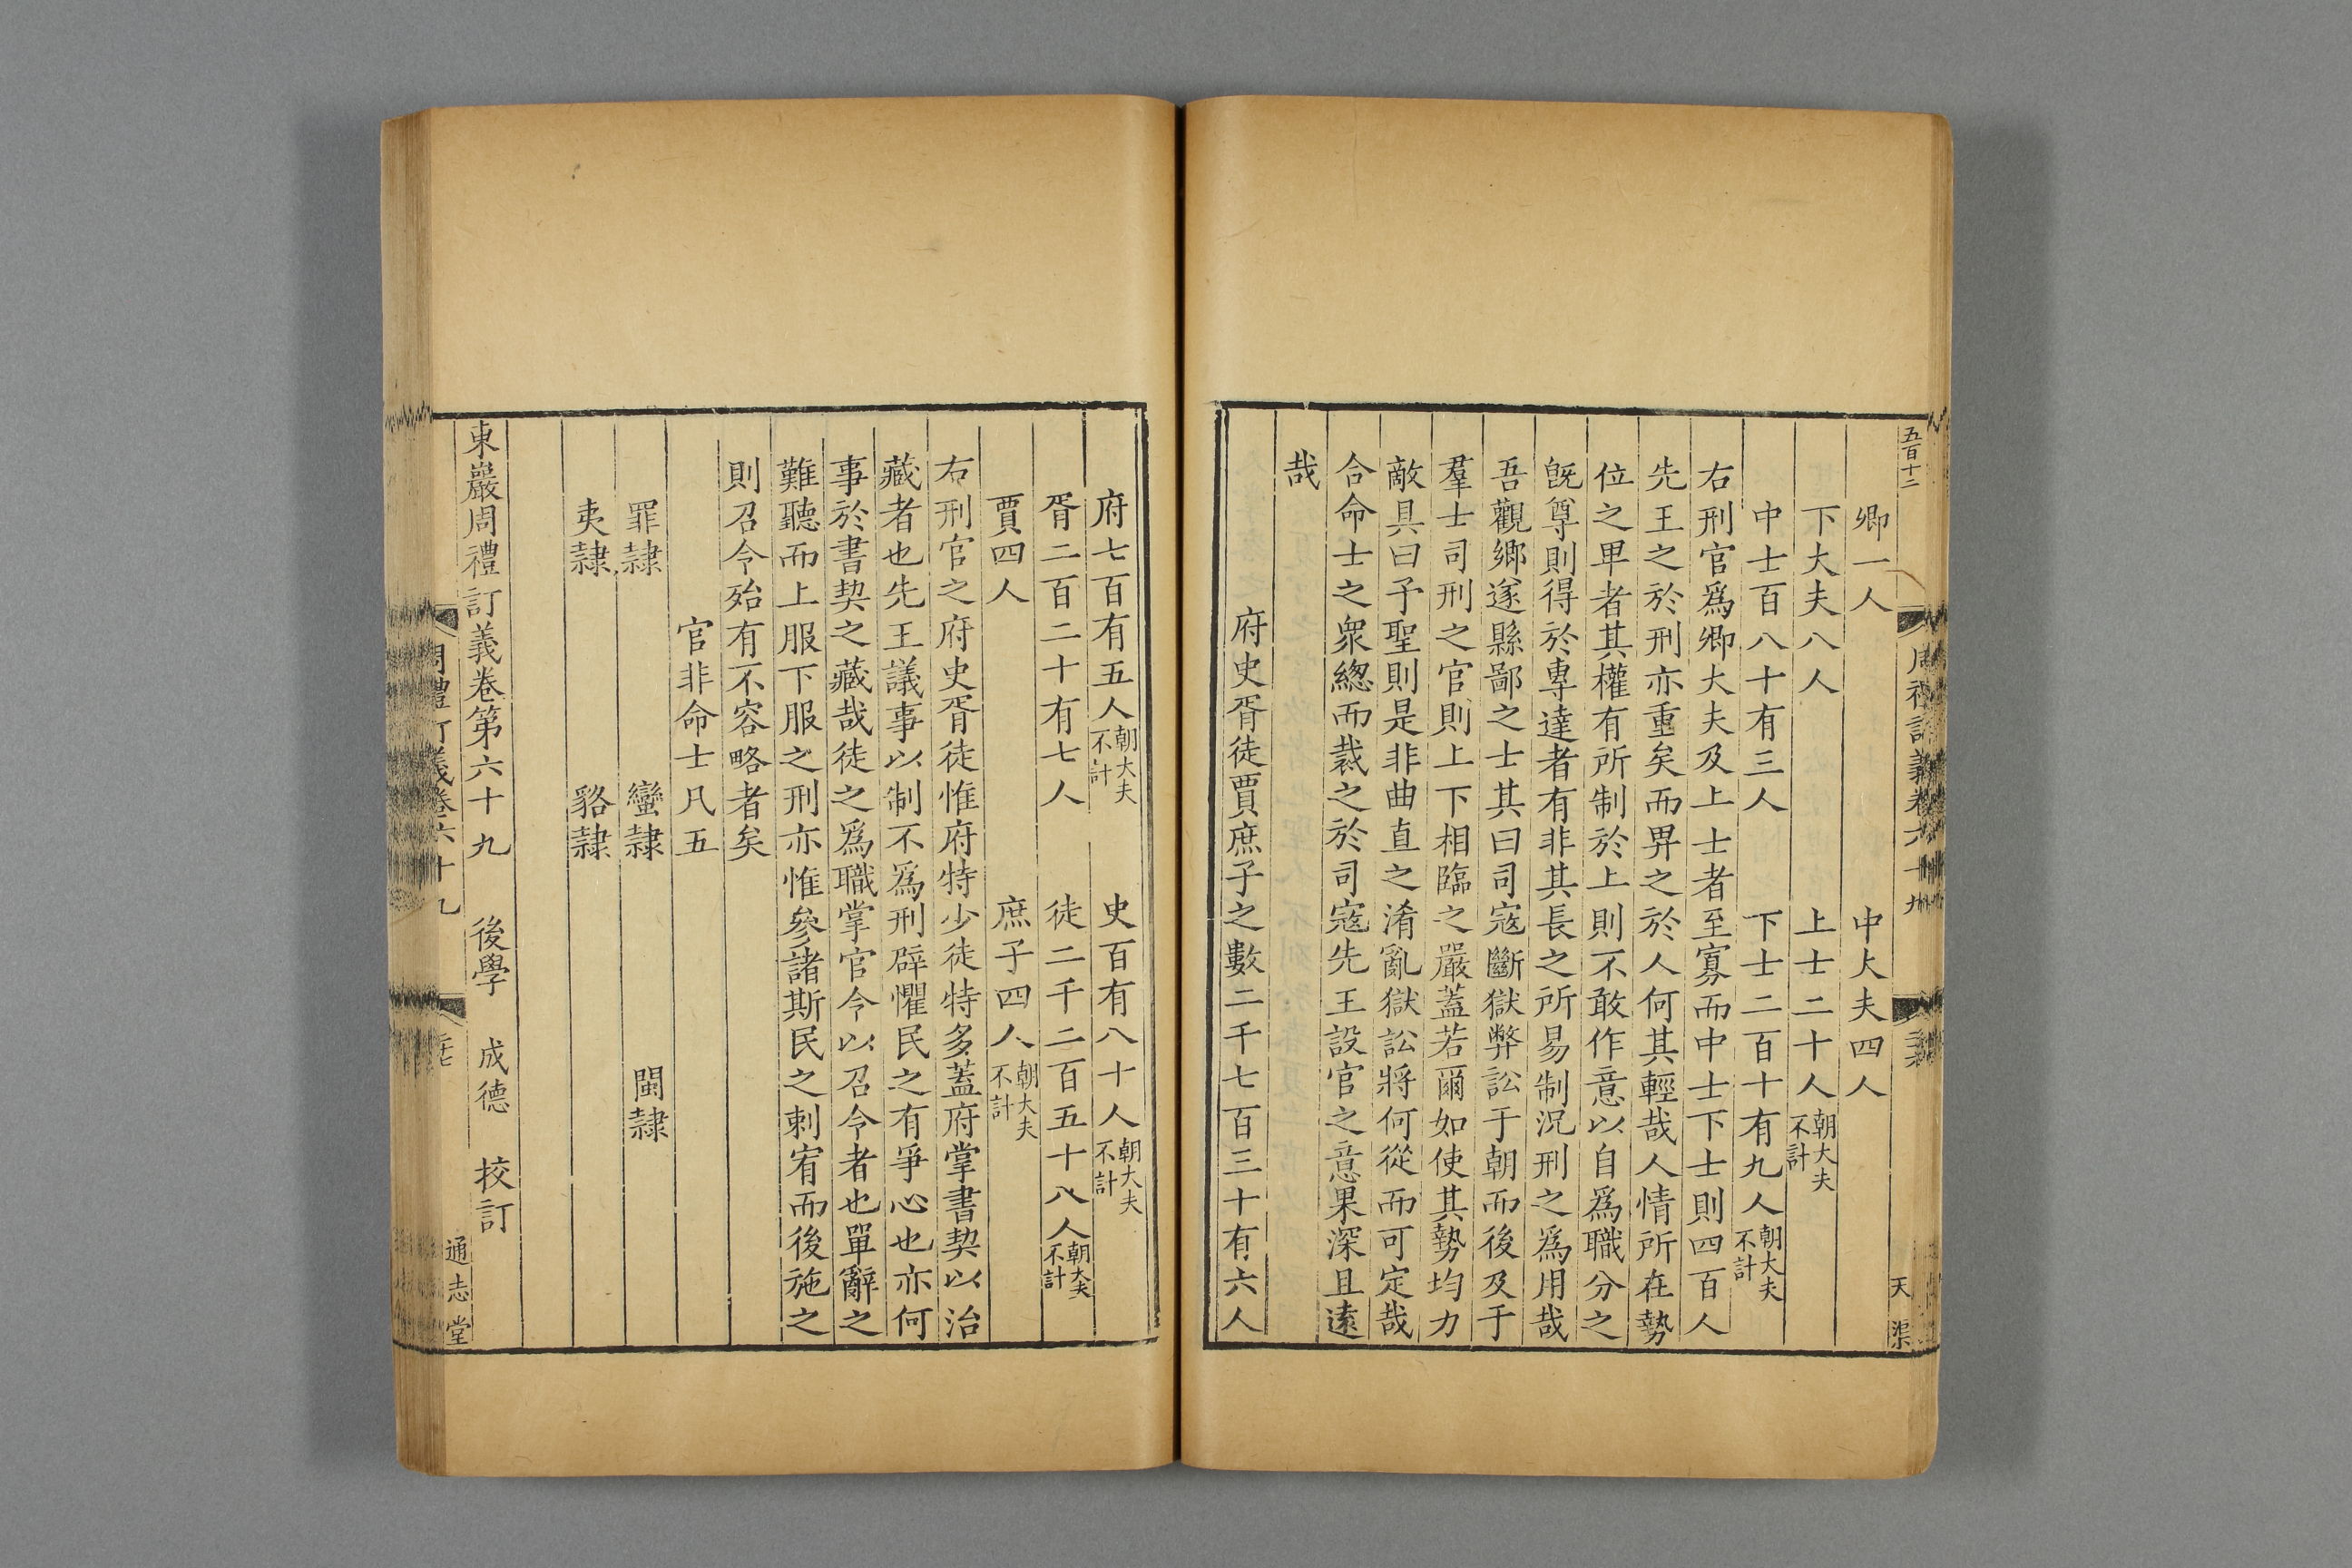 五百十二
天
渠
卿一人 中大夫四人
下大夫八人 上士二十人朝大夫不計
中士百八十有三人 下士二百十有九人朝大夫不計
右刑官爲卿大夫及上士者至寡而中士下士則四百人
先王之於刑亦重矣而畀之於人何其輕哉人情所在勢
位之卑者其權有所制於上則不敢作意以自爲職分之
旣尊則得於專達者有非其長之所易制況刑之爲用哉
吾觀鄉遂縣鄙之士其曰司寇斷獄弊訟于朝而後及于
羣士司刑之官則上下相臨之嚴蓋若爾如使其勢均力
敵具曰予聖則是非曲直之淆亂獄訟將何從而可定哉
合命士之衆緫而裁之於司寇先王設官之意果深且遠
哉
府史胥徒賈庶子之數二千七百三十有六人
府七百有五人朝大夫不計 史百有八十人朝大夫不計
胥二百二十有七人 徒二千二百五十八人朝大夫不計
賈四人 庶子四人朝大夫不計
右刑官之府史胥徒惟府特少徒特多蓋府掌書契以治
藏者也先王議事以制不爲刑辟懼民之有爭心也亦何
事於書契之藏哉徒之爲職掌官令以召令者也單辭之
難聽而上服下服之刑亦惟參諸斯民之刺宥而後施之
則召令殆有不容略者矣
官非命士凡五
罪隸 蠻隸 閩隸
夷隸 貉隸
東巖周禮訂義卷第六十九 後學 成德 挍訂
周禮訂義卷六十九
通志堂